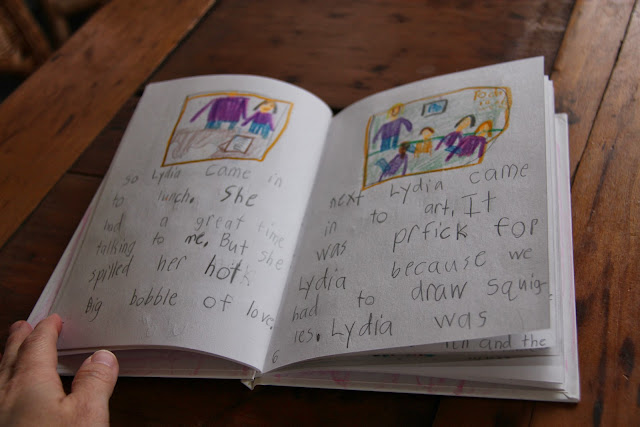 so Lydia came in
to lunch. She
had a great time
talking to me. But she
spilled her hotk
Big bobble of love.
next Lydia came
in to art. It
was prfick for
Lydia because we
had to draw squig-
les. Lydia was
6.
and the